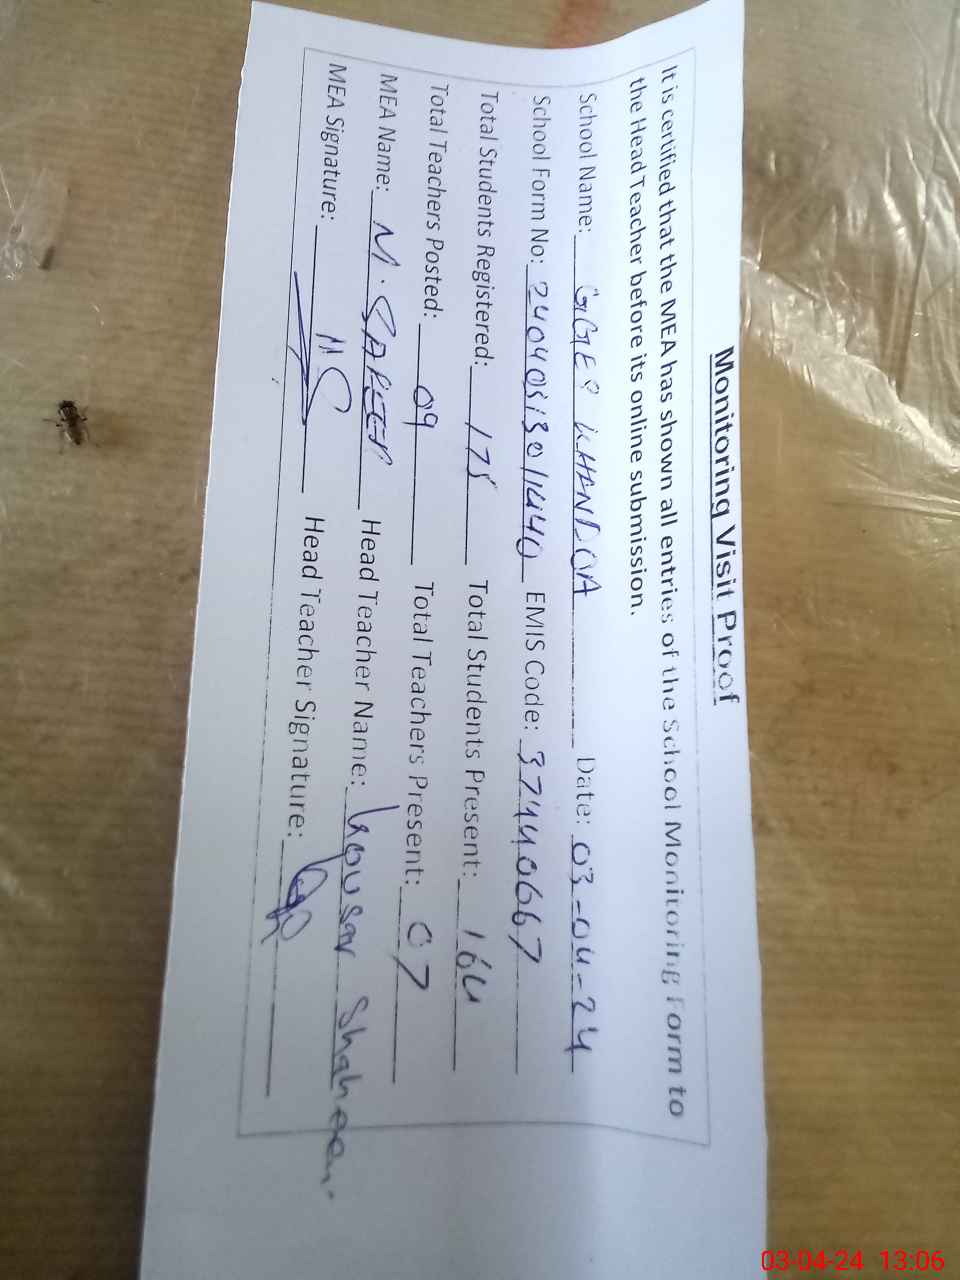 Monitoring Visit Proof
It is certified that the MEA has shown all entries of the School Monitoring Form to
the Head Teacher before its online submission.
School Name: GGES KHANDOA Date: 03-04-24
School Form No: EMIS Code: 37440667
Total Students Registered: 175 Total Students Present: 164
Total Teachers Posted: 09 Total Teachers Present: 07
MEA Name: M. Head Teacher Name: Kousar Shaheen.
MEA Signature: Head Teacher Signature:
03-04-24 13:06